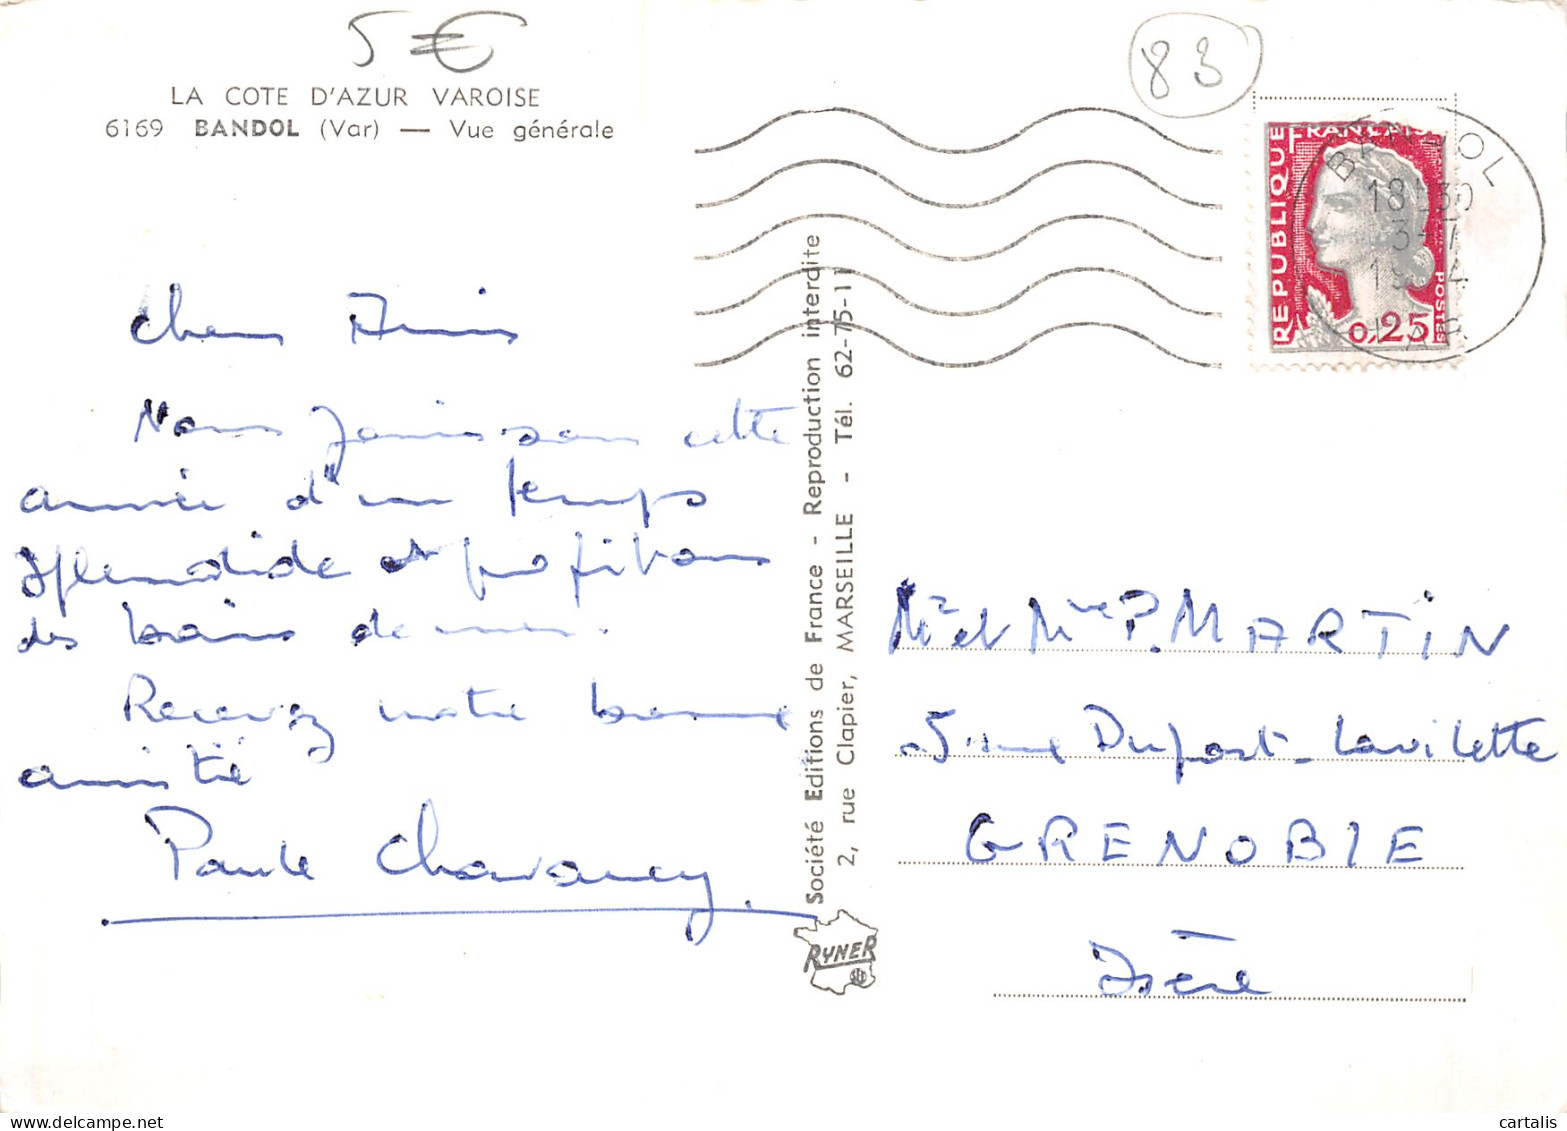 5 €
83
LA COTE D'AZUR VAROISE
6169 BANDOL (Var) — Vue générale
Chers Amis
Nous jouissons cette
année d'un temps
splendide et profitons
des bains de mer.
Recevez notre bonne
amitié
Paule Chavaney.
Société Editions de France - Reproduction interdite
2, rue Clapier, MARSEILLE - Tél. 62-75-11
RYNER
REPUBLIQUE FRANÇAISE
POSTES
0,25
BANDOL
18H30
3-7
VAR
Mr et Mme P. MARTIN
5 rue Dupont-Lavilette
GRENOBLE
Isère
cartalis